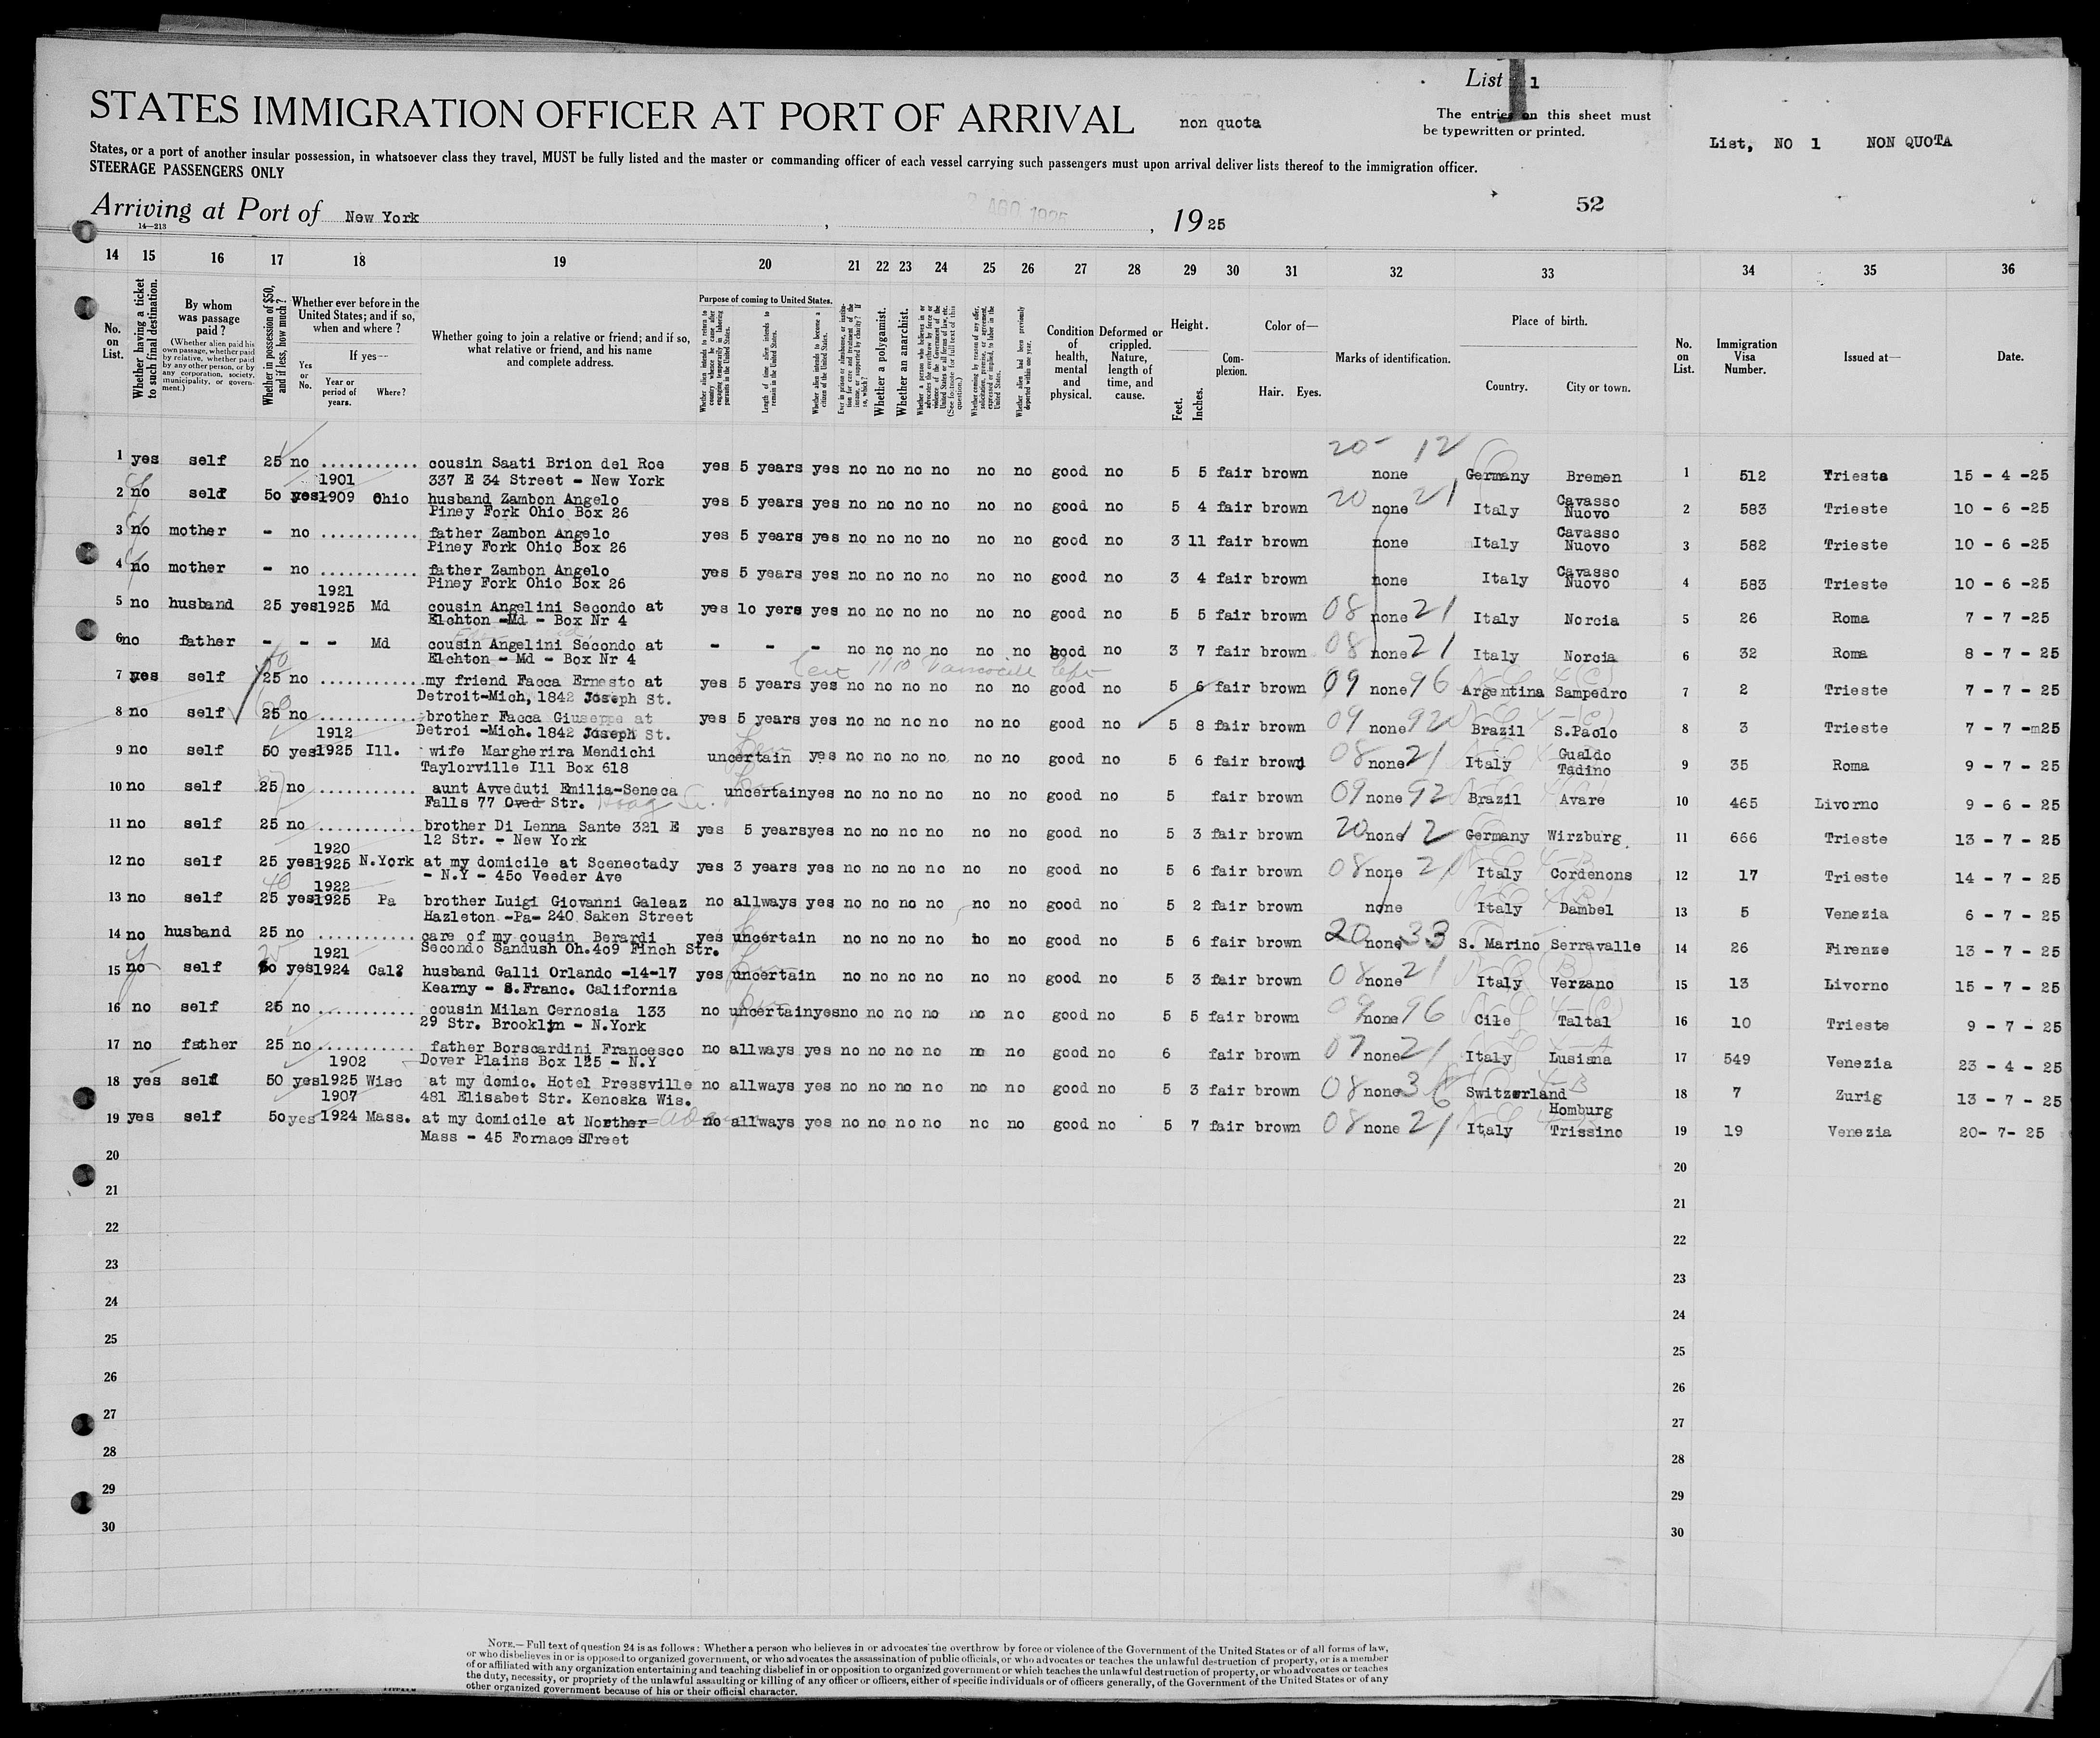 List 1
STATES IMMIGRATION OFFICER AT PORT OF ARRIVAL
non quota
The entries on this sheet must
be typewritten or printed.
List, NO 1 NON QUOTA
States, or a port of another insular possession, in whatsoever class they travel, MUST be fully listed and the master or commanding officer of each vessel carrying such passengers must upon arrival deliver lists thereof to the immigration officer.
STEERAGE PASSENGERS ONLY
52
Arriving at Port of New York, 2 AGO 1925, 19 25
14—213
14 15 16 17 18 19 20 21 22 23 24 25 26 27 28 29 30 31 32 33 34 35 36
No. on List.
Whether having a ticket to such final destination.
By whom was passage paid?
(Whether alien paid his own passage, whether paid by relative, whether paid by any other person, or by any corporation, society, municipality, or government.)
Whether in possession of $50, and if less, how much?
Whether ever before in the United States; and if so, when and where?
Yes or No.
If yes—
Year or period of years.
Where?
Whether going to join a relative or friend; and if so, what relative or friend, and his name and complete address.
Purpose of coming to United States.
Whether alien intends to return to country whence he came after engaging temporarily in laboring pursuits in the United States.
Length of time alien intends to remain in the United States.
Whether alien intends to become a citizen of the United States.
Ever in prison or almshouse, or institution for care and treatment of the insane, or supported by charity? If so, which?
Whether a polygamist.
Whether an anarchist.
Whether a person who believes in or advocates the overthrow by force or violence of the Government of the United States or all forms of law, etc. (See footnote for full text of this question.)
Whether coming by reason of any offer, solicitation, promise, or agreement, expressed or implied, to labor in the United States.
Whether alien had been previously deported within one year.
Condition of health, mental and physical.
Deformed or crippled. Nature, length of time, and cause.
Height.
Feet. Inches.
Complexion.
Color of—
Hair. Eyes.
Marks of identification.
Place of birth.
Country. City or town.
No. on List.
Immigration Visa Number.
Issued at—
Date.
20 - 12
1 yes self 25 no ........... cousin Saati Brion del Roe yes 5 years yes no no no no no no good no 5 5 fair brown none Germany Bremen 1 512 Triesta 15 - 4 -25
337 E 34 Street - New York
1901
2 no self 50 yes 1909 Ohio husband Zambon Angelo yes 5 years yes no no no no no no good no 5 4 fair brown 20 none 21 Italy Cavasso Nuovo 2 583 Trieste 10 - 6 -25
Piney Fork Ohio Box 26
3 no mother - no ........... father Zambon Angelo yes 5 years yes no no no no no no good no 3 11 fair brown none Italy Cavasso Nuovo 3 582 Trieste 10 - 6 -25
Piney Fork Ohio Box 26
4 no mother - no ........... father Zambon Angelo yes 5 years yes no no no no no no good no 3 4 fair brown none Italy Cavasso Nuovo 4 583 Trieste 10 - 6 -25
Piney Fork Ohio Box 26
1921
5 no husband 25 yes 1925 Md cousin Angelini Secondo at yes lo yers yes no no no no no no good no 5 5 fair brown 08 none 21 Italy Norcia 5 26 Roma 7 - 7 -25
Elchton -Md - Box Nr 4
6 no father - - - Md cousin Angelini Secondo at - - - no no no no no no good no 3 7 fair brown 08 none 21 Italy Norcia 6 32 Roma 8 - 7 - 25
Elchton - Md - Box Nr 4
7 yes self 25 no ............ my friend Facca Ernesto at yes 5 years yes no no no no no no good no 5 6 fair brown 09 none 96 Argentina Sampedro 7 2 Trieste 7 - 7 - 25
Detroit-Mich, 1842 Joseph St.
8 no self 25 no ........... brother Facca Giuseppe at yes 5 years yes no no no no no no good no 5 8 fair brown 09 none 92 Brazil S.Paolo 8 3 Trieste 7 - 7 -m25
Detroi -Mich. 1842 Joseph St.
1912
9 no self 50 yes 1925 Ill. wife Margherira Mendichi uncertain yes no no no no no no good no 5 6 fair brown 08 none 21 Italy Gualdo Tadino 9 35 Roma 9 - 7 - 25
Taylorville Ill Box 618
10 no self 25 no ........... aunt Avveduti Emilia-Seneca uncertain yes no no no no no no good no 5 fair brown 09 none 92 Brazil Avare 10 465 Livorno 9 - 6 - 25
Falls 77 Oved Str.
11 no self 25 no ........... brother Di Lenna Sante 321 E yes 5 years yes no no no no no no good no 5 3 fair brown 20 none 12 Germany Wirzburg. 11 666 Trieste 13 - 7 - 25
12 Str. - New York
1920
12 no self 25 yes 1925 N.York at my domicile at Scenectady yes 3 years yes no no no no no no good no 5 6 fair brown 08 none 21 Italy Cordenons 12 17 Trieste 14 - 7 - 25
- N.Y - 45o Veeder Ave
1922
13 no self 25 yes 1925 Pa brother Luigi Giovanni Galeaz no allways yes no no no no no no good no 5 2 fair brown none Italy Dambel 13 5 Venezia 6 - 7 - 25
Hazleton -Pa- 240 Saken Street
14 no husband 25 no ........... care of my cousin Berardi yes uncertain no no no no no no good no 5 6 fair brown 20 none 33 S. Marino Serravalle 14 26 Firenze 13 - 7 - 25
Secondo Sandush Oh.4o9 Finch Str.
1921
15 no self 50 yes 1924 Cal. husband Galli Orlando -14-17 yes uncertain no no no no no no good no 5 3 fair brown 08 none 21 Italy Verzano 15 13 Livorno 15 - 7 - 25
Kearny - S.Franc. California
16 no self 25 no ........... cousin Milan Cernosia 133 no uncertain yes no no no no no no good no 5 5 fair brown 09 none 96 Cile Taltal 16 10 Trieste 9 - 7 - 25
29 Str. Brooklyn - N.York
17 no father 25 no ........... father Borscardini Francesco no allways yes no no no no no no good no 6 fair brown 07 none 21 Italy Lusiana 17 549 Venezia 23 - 4 - 25
Dover Plains Box 125 - N.Y
1902
18 yes self 50 yes 1925 Wisc at my domic. Hotel Pressville no allways yes no no no no no no good no 5 3 fair brown 08 none 36 Switzerland Homburg 18 7 Zurig 13 - 7 - 25
481 Elisabet Str. Kenoska Wis.
1907
19 yes self 50 yes 1924 Mass. at my domicile at Norther no allways yes no no no no no no good no 5 7 fair brown 08 none 21 Italy Trissino 19 19 Venezia 20- 7- 25
Mass - 45 Fornace STreet
20 20
21 21
22 22
23 23
24 24
25 25
26 26
27 27
28 28
29 29
30 30
NOTE.—Full text of question 24 is as follows: Whether a person who believes in or advocates the overthrow by force or violence of the Government of the United States or of all forms of law,
or who disbelieves in or is opposed to organized government, or who advocates the assassination of public officials, or who advocates or teaches the unlawful destruction of property, or is a member
of or affiliated with any organization entertaining and teaching disbelief in or opposition to organized government or which teaches the unlawful destruction of property, or who advocates or teaches
the duty, necessity, or propriety of the unlawful assaulting or killing of any officer or officers, either of specific individuals or of officers generally, of the Government of the United States or of any
other organized government because of his or their official character.